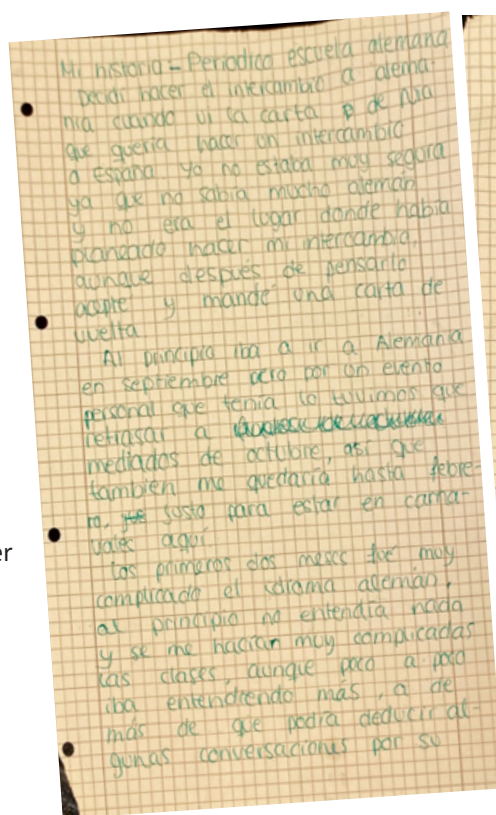 Mi historia - Periodico escuela alemana
Decidí hacer el intercambio a alema-
nia cuando vi la carta de Nia
que quería hacer un intercambio
a España yo no estaba muy segura
ya que no sabía mucho alemán
y no era el lugar donde había
planeado hacer mi intercambio,
aunque después de pensarlo
acepté y mandé una carta de
vuelta
Al principio iba a ir a Alemania
en septiembre pero por un evento
personal que tenía lo tuvimos que
retrasar a
mediados de octubre, así que
también me quedaría hasta febre-
ro, justo para estar en carna-
vales aquí
los primeros dos meses fue muy
complicado el idioma alemán,
al principio no entendía nada
y se me hacían muy complicadas
las clases, aunque poco a poco
iba entendiendo más, a de
más de que podía deducir al-
gunas conversaciones por su
er